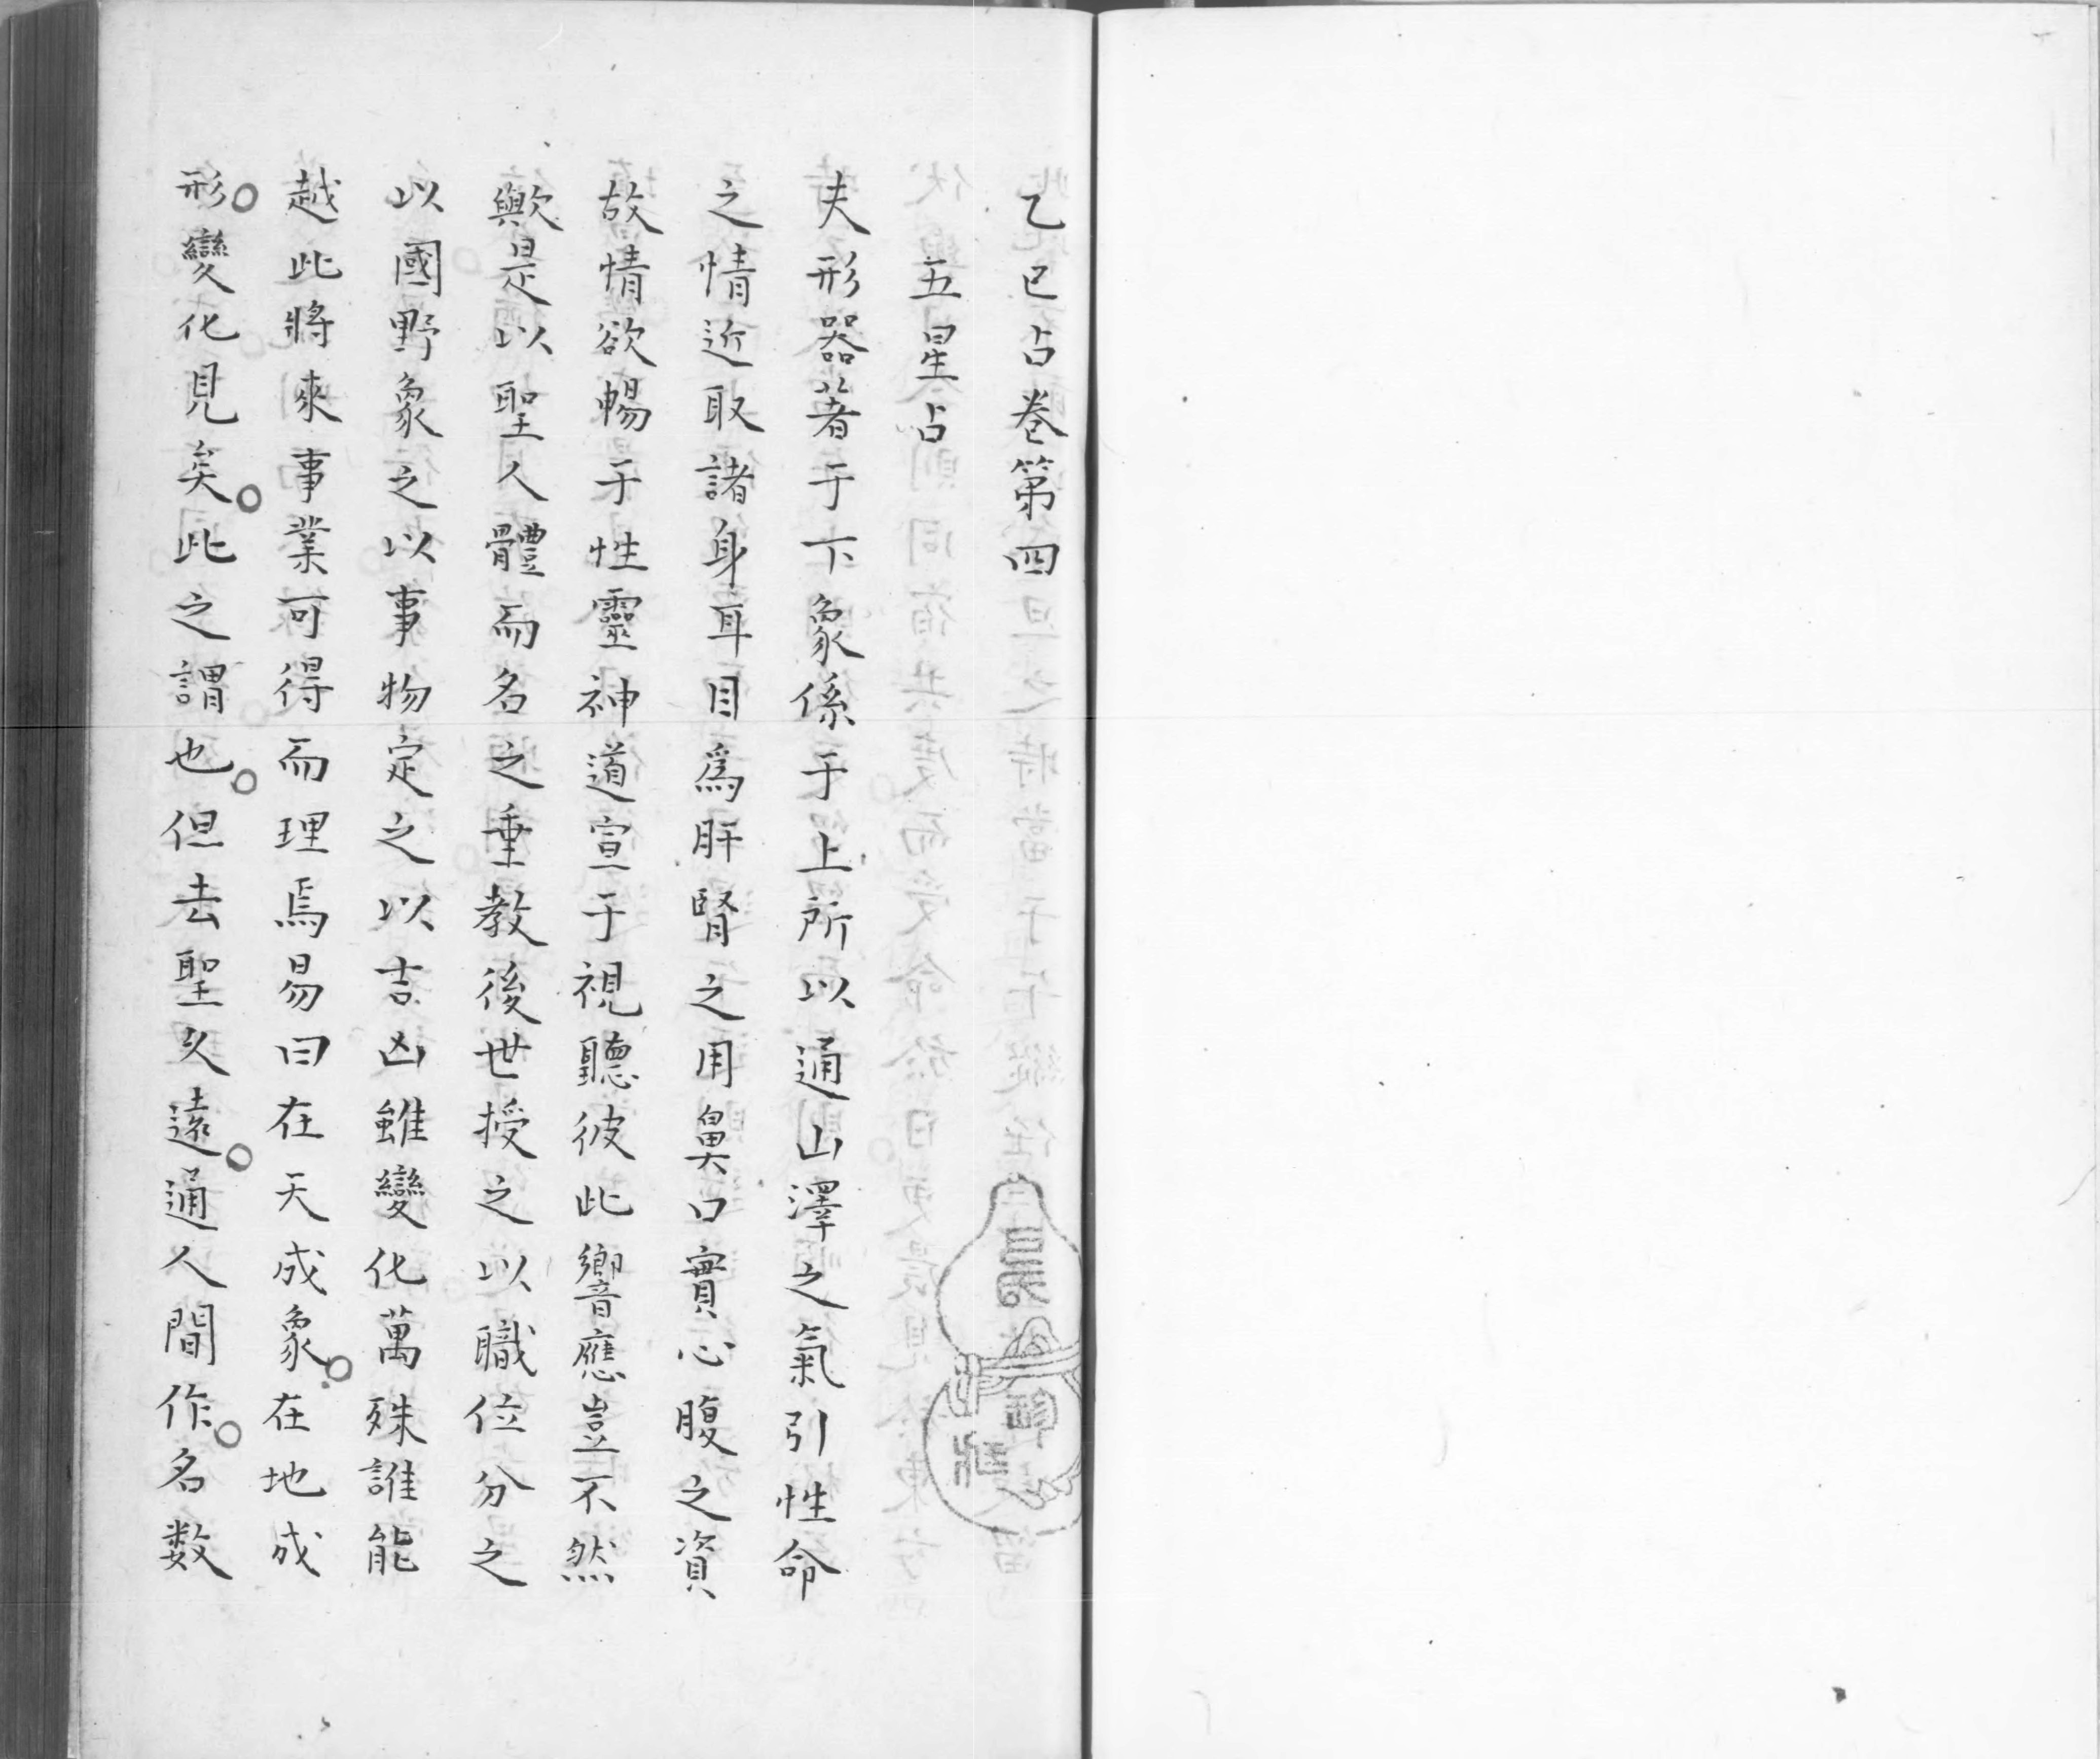 乙巳占卷第四
五星占
夫形器著于下象係于上所以通山澤之氣引性命
之情近取諸身耳目爲肝腎之用鼻口實心腹之資
故情欲暢于性靈神道宣于視聽彼此響應豈不然
歟是以聖人體而名之垂教後世授之以職位分之
以國野象之以事物定之以吉凶雖變化萬殊誰能
越此將來事業可得而理焉易曰在天成象。在地成
形。變化見矣。此之謂也。但去聖久遠。通人間作。名数